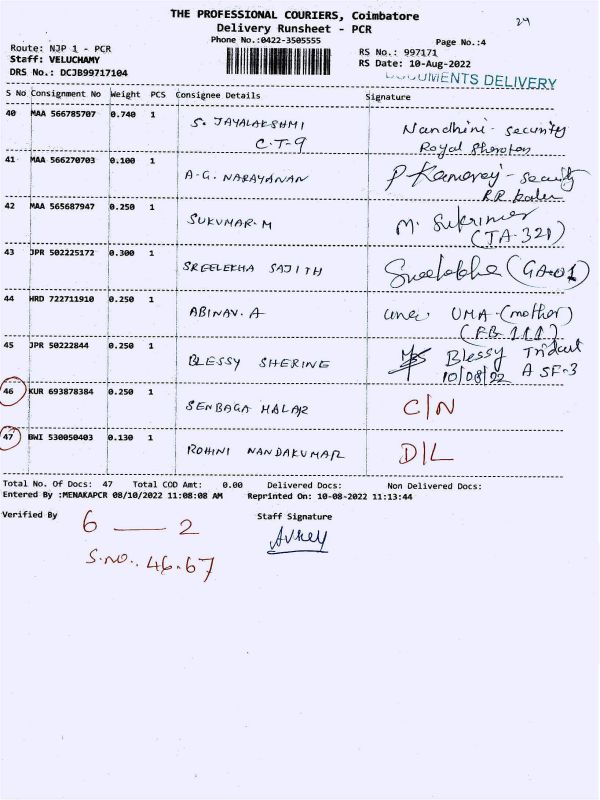 THE PROFESSIONAL COURIERS, Coimbatore
24
Delivery Runsheet - PCR
Phone No.:0422-3505555
Page No.:4
Route: NJP 1 - PCR
RS No.: 997171
Staff: VELUCHAMY
RS Date: 10-Aug-2022
DRS No.: DCJB99717104
DOCUMENTS DELIVERY
S No Consignment No Weight PCS Consignee Details Signature
40 MAA 566785707 0.740 1 S. JAYALAKSHMI Nandhini - security
C.T-9 Royal
41 MAA 566270703 0.100 1 A-G. NARAYANAN P - Security
R.R
42 MAA 565687947 0.250 1 SUKUMAR.M M.
(JA-321)
43 JPR 502225172 0.300 1 SREELEKHA SAJITH
44 HRD 722711910 0.250 1 ABINAV. A UMA (mother)
(FB 111)
45 JPR 50222844 0.250 1 BLESSY SHERINE Blessy
10/08/22 A SF-3
46 KUR 693878384 0.250 1 SENBAGA MALAR C/N
47 BWI 530050403 0.130 1 ROHINI NANDAKUMAR D/L
Total No. Of Docs: 47 Total COD Amt: 0.00 Delivered Docs: Non Delivered Docs:
Entered By :MENAKAPCR 08/10/2022 11:08:08 AM Reprinted On: 10-08-2022 11:13:44
Verified By 6 — 2 Staff Signature
S.no.. 46.67